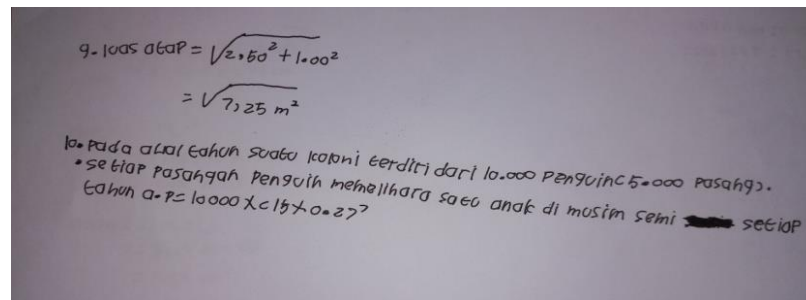 9. luas atap = √2,50² + 1.00²
= √7,25 m²
10. pada awal tahun suatu koloni terdiri dari 10.000 penguin (5.000 pasang).
• setiap pasangan penguin memelihara satu anak di musim semi setiap
tahun a. p = 10000 x (1,5 x 0.27)